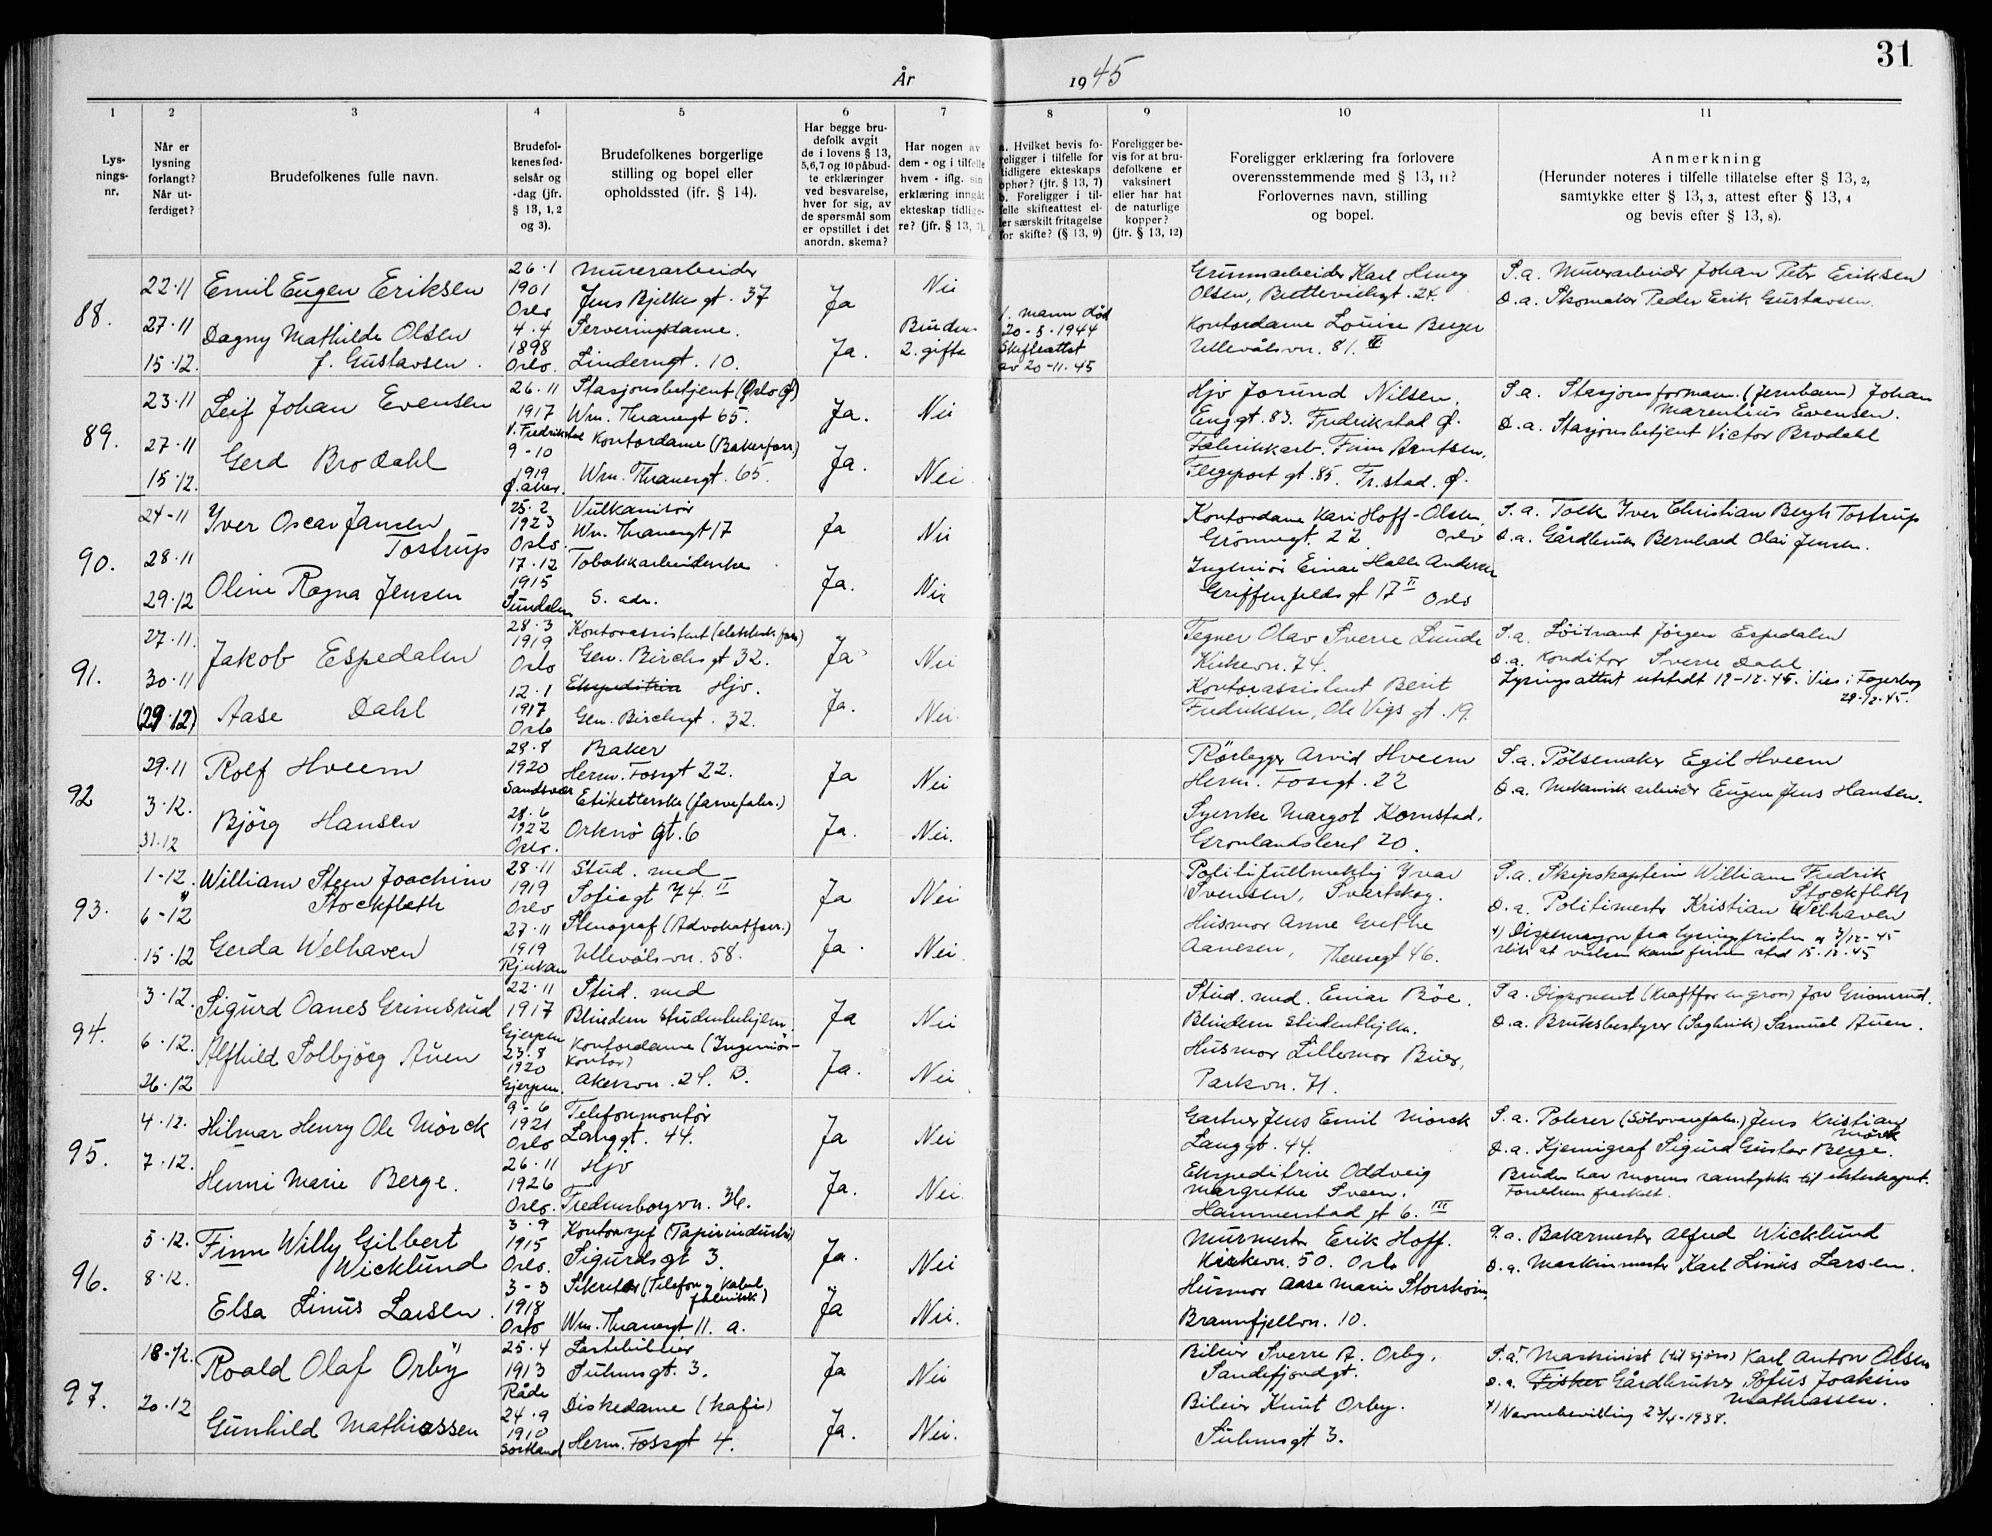 31
År 1945
1 2 3 4 5 6 7 8 9 10 11
Lys-
nings-
nr.
Når er
lysning
forlangt?
Når ut-
ferdiget?
Brudefolkenes fulle navn.
Brudefol-
kenes fød-
selsår og
-dag (jfr.
§ 13, 1, 2
og 3).
Brudefolkenes borgerlige
stilling og bopel eller
opholdssted (ifr. § 14).
Har begge bru-
defolk avgit
de i lovens § 13,
5,6,7 og 10 påbud-
te erklæringer
ved besvarelse,
hver for sig, av
de spørsmål som
er opstillet i det
anordn. skema?
Har nogen av
dem - og i tilfelle
hvem - iflg. sin
erklæring inngått
ekteskap tidlige-
re? (jfr. § 13, 7).
a. Hvilket bevis fo-
religger i tilfelle for
tidligere ekteskaps
ophør? (jfr. § 13, 7)
b. Foreligger i til-
felle skifteattest el-
ler særskilt fritagelse
for skifte? (§ 13, 9)
Foreligger be-
vis for at bru-
defolkene er
vaksinert
eller har hat
de naturlige
kopper?
(jfr. § 13, 12)
Foreligger erklæring fra forlovere
overensstemmende med § 13, 11?
Forlovernes navn, stilling
og bopel.
Anmerkning
(Herunder noteres i tilfelle tillatelse efter § 13, 2,
samtykke efter § 13, 3, attest efter § 13, 4
og bevis efter § 13, 8).
88.
22-11
27-11
15-12.
Emil Eugen Eriksen
Dagny Mathilde Olsen
f. Gustavsen.
26-1
1901
Oslo
4-4
1898
Oslo.
Murerarbeider
Jens Bjelkes gt. 37
Serveringsdame.
Linderngt. 10.
Ja
Ja.
Nei
Bruden
2. gifte
1. mann død
20-8-1944
Skifteattest
av 20-11-45
Grunnarbeider Karl Henry
Olsen, gt. 24.
Kontordame Louise Berger
Ullevålsvn. 81.
S.a. Murerarbeider Johan Peter Eriksen
D.a. Skomaker Peder Erik Gustavsen.
89.
23-11
27-11
15-12.
Leif Johan Evensen
Gerd Brodahl
26-11
1917
V. Fredrikstad
9-10
1919
Ø. Aker.
Stasjonsbetjent (Oslo Ø)
Wm. Thranesgt 65.
Kontordame (Bakerforr.)
Wm. Thranesgt. 65.
Ja.
Ja.
Nei
Nei.
Hjv Jorund Nilsen,
Enggt. 83. Fredrikstad Ø.
Fabrikkarb. Finn Arntsen,
gt. 85. Fr.stad. Ø.
S.a. Stasjonsformann. (Jernban) Johan
Marentius Evensen.
D.a. Stasjonsbetjent Victor Brodahl
90.
24-11
28-11
29-12
Yver Oscar Jansen
Tostrup
Oline Ragna Jensen
25-2
1923
Oslo
17-12
1915
Sundalen
Vulkanisør
Wm. Thranesgt 17
Tobakkarbeiderske
S. adr.
Ja
Ja.
Nei
Nei
Kontordame Kari Hoff-Olsen,
Grönnegt. 22 Oslo
Ingeniör Einar Halle Andersen
Griffenfelds gt 17 II Oslo
S.a. Tolk Yver Christian Bergh Tostrup
D.a. Gårdbruker Bernhard Olai Jensen.
91.
27-11.
30-11
(29-12)
Jakob Espedalen
Aase Dahl
28-3
1919
Oslo
12-1
1917
Oslo
Kontorassistent (elektrisk forr)
Gen. Birchs gt 32.
Ekspeditrise Hjv.
Gen. Birchsgt. 32.
Ja
Ja.
Nei
Nei.
Tegner Olav Sverre Lunde
Kirkevn. 74.
Kontorassistent Berit
Fredriksen, Ole Vigs gt. 19.
S.a. Löitnant Jörgen Espedalen
D.a. Konditor Sverre Dahl.
Lysningsattest utstedt 19-12-45. Vies i Fagerborg
29-12-45.
92
29-11
3-12.
31-12
Rolf Hveem
Björg Hansen
28-8
1920
Sandsvær
28-6
1922
Oslo.
Baker
Herm. Fossgt 22.
Etiketterske (farvefabr.)
Orknö gt. 6
Ja
Ja.
Nei
Nei.
Rörlegger Arvid Hveem
Herm. Fossgt. 22
Syerske Margot Kornstad.
Grønlandsleret 20.
S.a. Pölsemaker Egil Hveem
D.a. Mekanisk arbeider Eugen Jens Hansen.
93.
1-12.
6-12
15-12
William Steen Joachim
Stockfleth
Gerda Welhaven
28-11
1919
Oslo
27-11
1919
Rjukan
Stud. med
Sofiesgt 74. II
Stenograf (Advokatforr.)
Ullevålsvn. 58.
Ja
Ja.
Nei
Nei.
Politifullmektig Yvar
Svensen, Svartskog.
Husmor Anne Grethe
Aanesen, Theresesgt 46.
S.a. Skipskaptein William Fredrik
Stockfleth
D.a. Politimester Kristian Welhaven
x) Dispensasjon fra lysningsfristen av 3/12-45
slik at vielsen kan finne sted 15-12-45
94.
3-12.
6-12.
26-12
Sigurd Oanes Grimsrud
Alfhild Solbjörg Auen
22-11
1917
Gjerpen
23-8
1920
Gjerpen.
Stud. med
Blindern studenterhjem.
Kontordame (Ingeniör-
kontor)
Akersvn. 24. B.
Ja
Ja.
Nei
Nei
Stud. med. Einar Böe.
Blindern studenthjem.
Husmor Lillemor Buer,
Parkvn. 71.
S.a. Disponent (Kraftfor en gros) Jon Grimsrud.
D.a. Bruksbestyrer (Sagbruk) Samuel Auen.
95.
4-12.
7-12.
Hilmar Henry Ole Mörck
Henni Marie Berge.
9-6
1921
Oslo
26-11
1926
Oslo.
Telefonmontör
Langgt. 44.
Hjv
Fredensborgvn. 36.
Ja
Ja.
Nei
Nei.
Gartner Jens Emil Mörck
Langgt. 44.
Ekspeditrise Oddveig
Margrethe Sveen.
Hammerstad gt 6. III
S.a. Polerer (Sölvvarefabr.) Jens Kristian
Mörck
D.a. Kjemigraf Sigurd Gustav Berge.
Bruden har morens samtykke til ekteskapet.
Foreldrene fraskilt.
96.
5-12.
8-12.
Finn Willy Gilbert
Wicklund
Elsa Linus Larsen.
3-9
1915
Oslo.
3-3
1918
Oslo
Kontorsjef (Papirindustri)
Sigurds gt 3.
Sekretær (Telefon og Kabel
fabrikk)
Wm. Thranesgt 11. a.
Ja.
Ja
Nei
Nei.
Murmester Erik Hoff.
Kirkevn. 50. Oslo
Husmor Aase Marie Storsheim,
Brannfjellvn. 10.
S.a. Bakermester Alfred Wicklund
D.a. Maskinmester Karl Linus Larsen.
97.
18-12.
20-12
Roald Olaf Orby x)
Gunhild Mathiassen
25-4
1913
Råde
24-9
1910
Sortland
Lastebileier
Suhmsgt. 3.
Diskedame (kafé)
Herm. Fossgt 4.
Ja
Ja.
Nei
Nei.
Bileier Sverre A. Orby,
Sandefjordgt.
Bileier Knut Orby.
Suhmsgt 3.
S.a. Maskinist (til sjøs) Karl Anton Olsen
D.a. Fisker Gårdbruker Sofus Joakim
Mathiassen.
x) Navnebevilling 23/4-1938.